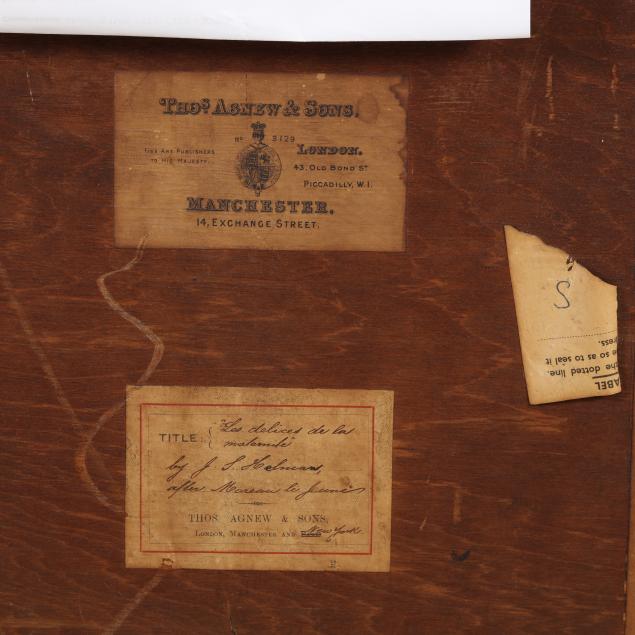 THOS AGNEW & SONS.
Nº 8129
FINE ART PUBLISHERS
TO HIS MAJESTY.
LONDON.
43, OLD BOND ST
PICCADILLY, W.1.
MANCHESTER.
14, EXCHANGE STREET.
S
ress.
e so as to seal it
he dotted line.
ABEL
TITLE: { "Les delices de la
maternité"
by J. S. Helman,
after Moreau le Jeune
THOS. AGNEW & SONS,
LONDON, MANCHESTER AND New York.